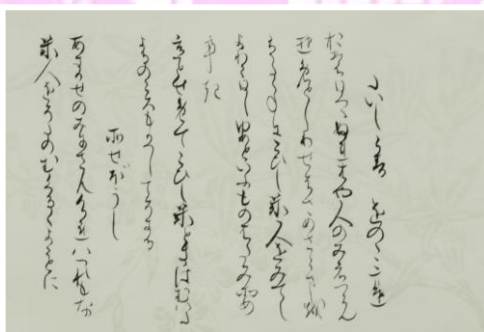 たいしらす をのゝこまち
おもひつゝぬれはや人のみえつらん
ゆめとしりせはさめさらましを
うたゝねにこひしき人をみてし
よりゆめてふものはたのみ初
てき
いとせめてこひしき時はむは
たまのよるのころもをかへしてそきる
そせいほうし
あきかせのみにさむけれはつれもな
き人をそたのむくるゝよことに